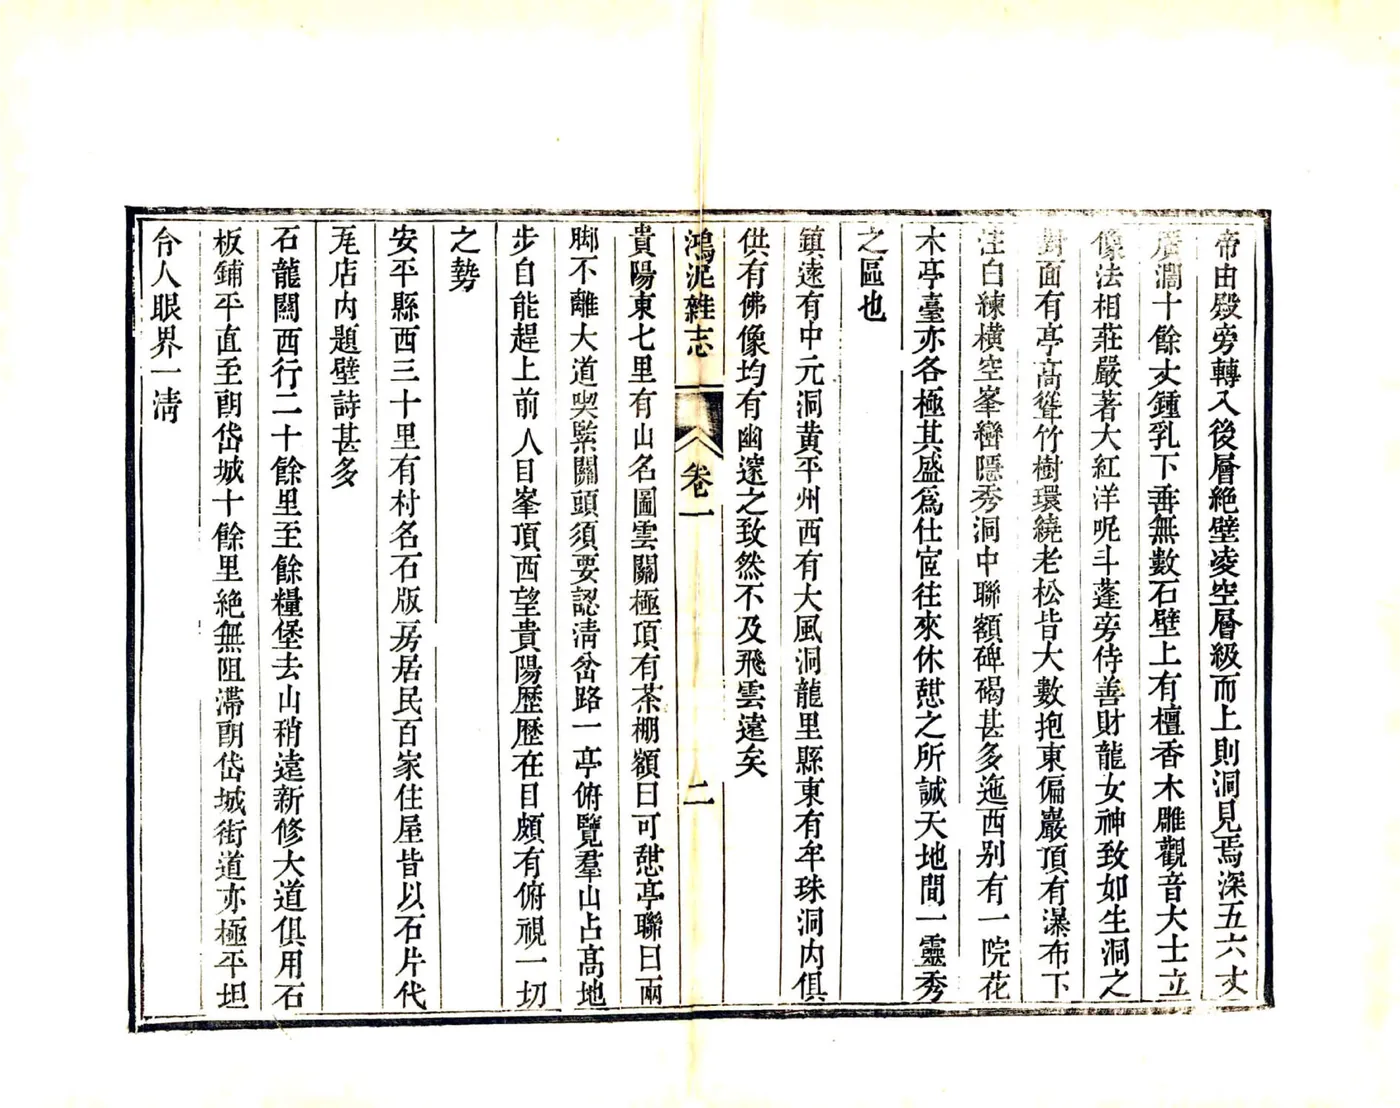 帝由殿旁轉入後層絶壁凌空層級而上則洞見焉深五六丈
廣濶十餘丈鍾乳下垂無數石壁上有檀香木雕觀音大士立
像法相莊嚴著大紅洋呢斗蓬旁侍善財龍女神致如生洞之
對面有亭高聳竹樹環繞老松皆大數抱東偏巖頂有瀑布下
注白練横空峯巒隱秀洞中聯額碑碣甚多迤西别有一院花
木亭臺亦各極其盛爲仕宦往來休憇之所誠天地間一靈秀
之區也
鎮遠有中元洞黄平州西有大風洞龍里縣東有牟珠洞内俱
供有佛像均有幽邃之致然不及飛雲遠矣
鴻泥雜志
卷一
二
貴陽東七里有山名圖雲關極頂有茶棚額曰可憇亭聯曰兩
脚不離大道喫緊關頭須要認清岔路一亭俯覽羣山占高地
步自能趕上前人目峯頂西望貴陽歷歷在目頗有俯視一切
之勢
安平縣西三十里有村名石版房居民百家住屋皆以石片代
瓦店内題壁詩甚多
石龍關西行二十餘里至餘糧堡去山稍遠新修大道俱用石
板鋪平直至朗岱城十餘里絶無阻滯朗岱城街道亦極平坦
令人眼界一清